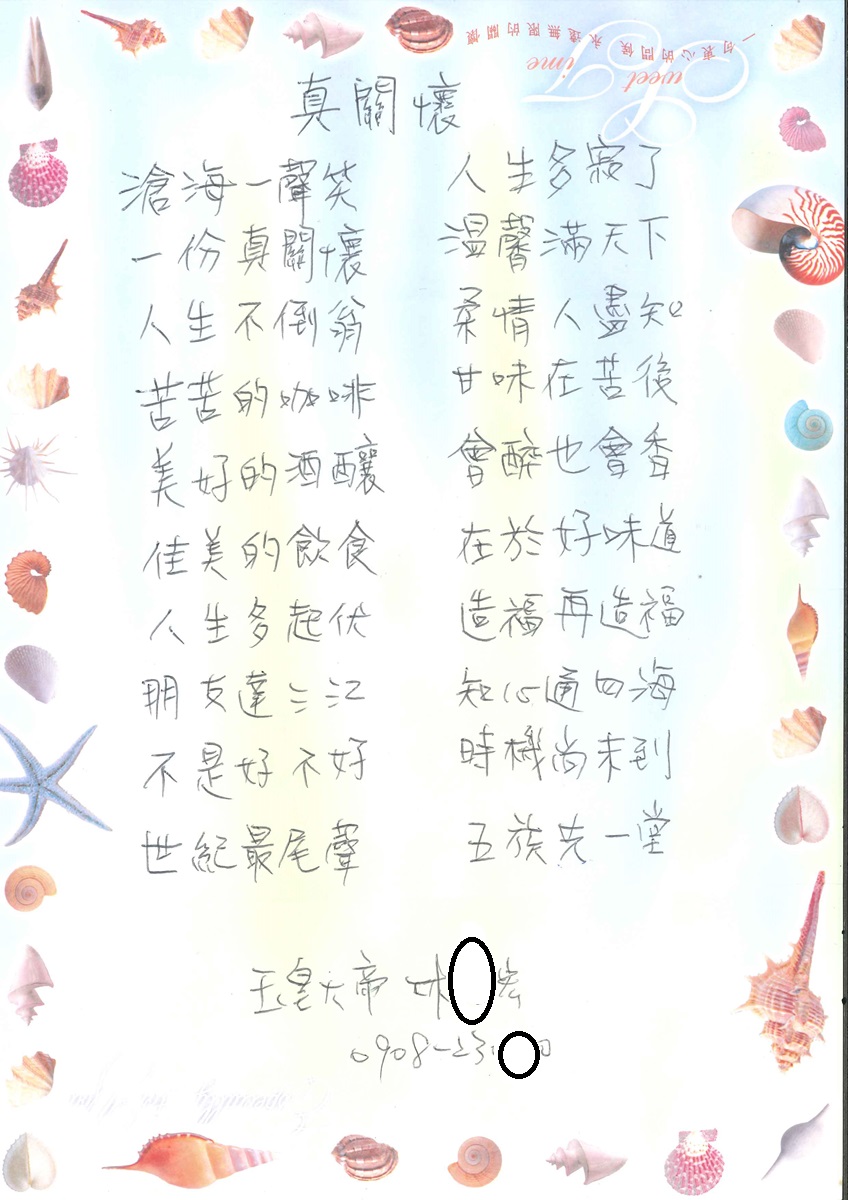 一句衷心的問候 永遠無限的關懷
Sweet Time
真關懷
滄海一聲笑 人生多寂了
一份真關懷 溫馨滿天下
人生不倒翁 柔情人盡知
苦苦的咖啡 甘味在苦後
美好的酒釀 會醉也會香
佳美的飲食 在於好味道
人生多起伏 造福再造福
朋友達三江 知心通四海
不是好不好 時機尚未到
世紀最尾聲 五族先一堂
玉皇大帝
0908-23